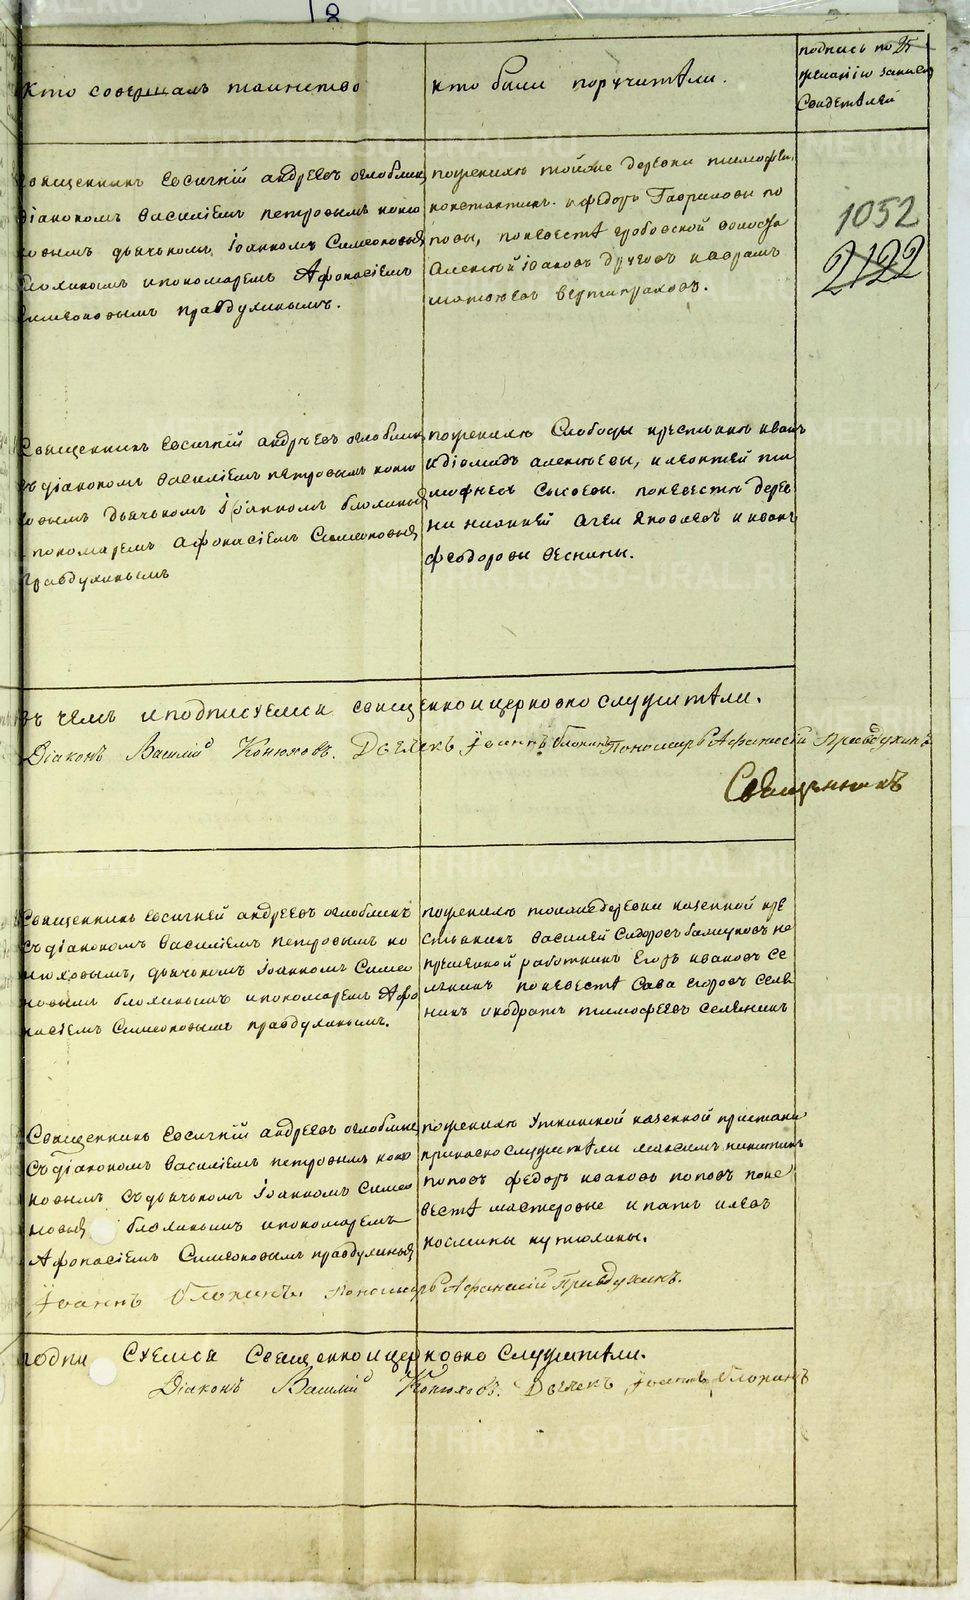 18
Кто совершалъ таинство
кто были поручители.
подпись по 25
желанію запись
Свидетѣлей
1052
2122
Священникъ Евсигній андреевъ оглоблинъ
діакономъ василіемъ петровымъ коню
ховымъ дьячькомъ Іоанномъ Симеоновы
блохинымъ ипономаремъ Афонасіемъ
симеоновымъ правдухинымъ.
поженихѣ тойже деревни тимофей
константинъ. и федоръ Гавриловы по
повы, поневестѣ гробовской волости
Алексѣй іоаковъ
матфеевъ
Священникъ Евсигній андрѣевъ оглоблинъ
съ діакономъ василіемъ петровымъ коню
ховымъ дьячькомъ Іоанномъ блохины
пономаремъ афонасіемъ Симеоновы
правдухинымъ
поженихѣ Слободы крестьяне иванъ
идіомидъ алексѣевы, илеонтей ти
мофеевъ Сысоевы. поневестѣ дерев
ни нижней Агей яковлевъ и иванъ
феодоровы веснины.
въ чемъ иподписуемся священно ицерковно служители.
Діаконъ Василій Конюховъ. Дьячекъ Іоаннъ блохинъ Пономарь Афанасій Правдухинъ
Священникъ
Священникъ евсигней андреевъ оглоблинъ
Съ діакономъ василіемъ петровымъ ко
нюховымъ, дьячькомъ іоанномъ Симео
новымъ блохинымъ ипономаремъ Афо
насіемъ Симеоновымъ правдухинымъ.
поженихѣ тоижедеревни казенной кре
стьянинъ василей Сидоровъ балуковъ не
премѣнной работникъ Егоръ ивановъ Се
лянинъ поневестѣ Сава егоровъ Селя
нинъ икодратъ тимофеевъ Селянинъ
Священникъ Евсигній андреевъ оглоблинъ
Съ діакономъ василіемъ петровымъ коню
ховымъ съ дьячькомъ Іоанномъ Симео
новы блохинымъ ипономаремъ
Афонасіемъ Симеоновымъ правдухины
поженихѣ Уткинской казенной пристани
приказно служители максимъ никитинъ
поповъ федоръ ивановъ поповъ поне
вестѣ мастеровые игнатъ илевъ
космины кутюхины.
Іоаннъ блохинъ Пономарь Афанасій Правдухинъ.
подпи суемся Священно ицерковно Служители.
Діаконъ Василій Конюховъ. Дьячекъ Іоаннъ Блохинъ
METRIKI.GASO-URAL.RU